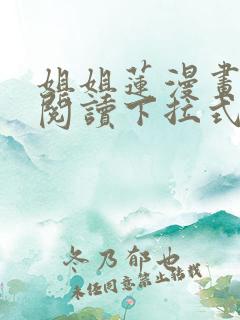 姐姐蓮漫畫
閱讀下拉式
冬乃郁也
未经同意禁止转载